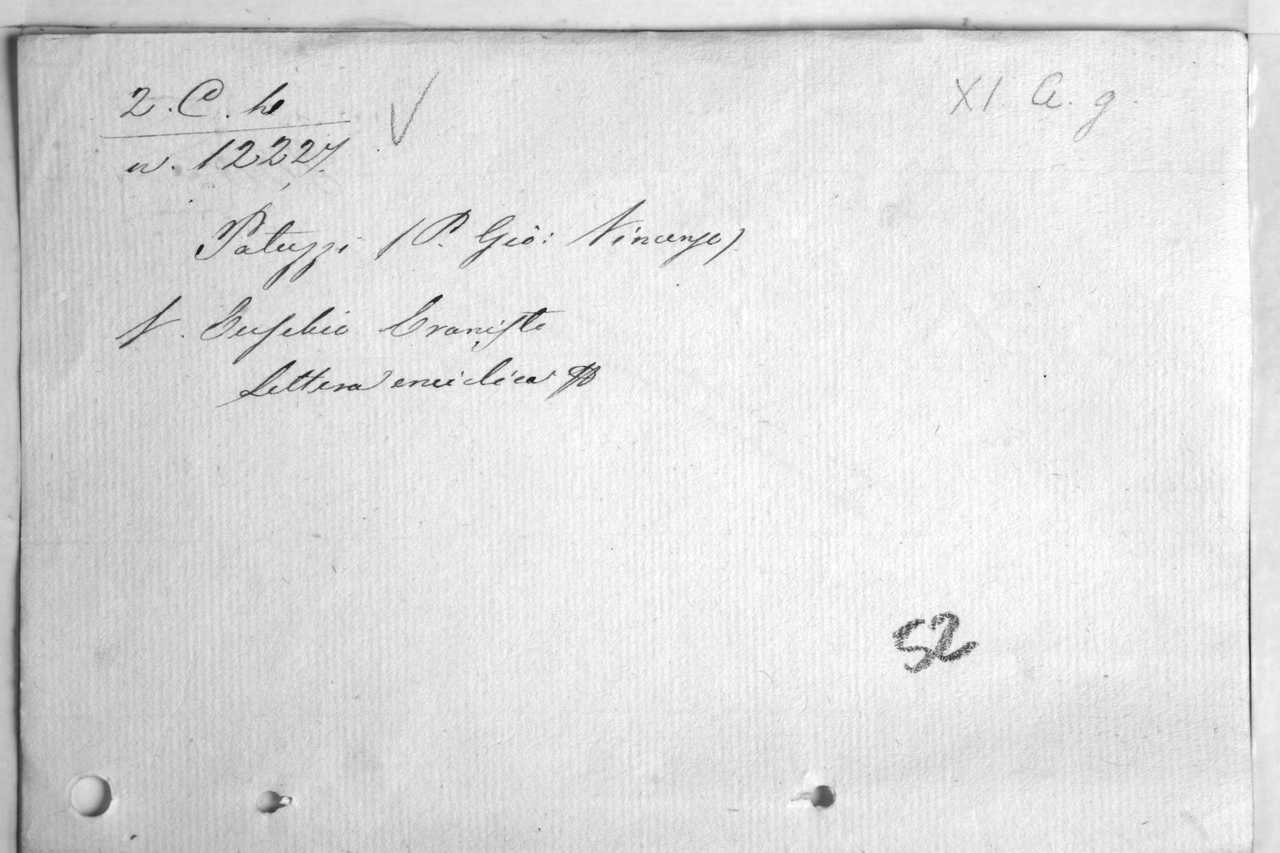 2. C. h
XI. a. g.
n. 12227.
Patuzzi (P. Gio: Vincenzo)
V. Eusebio Eraniste
Lettera enciclica
52